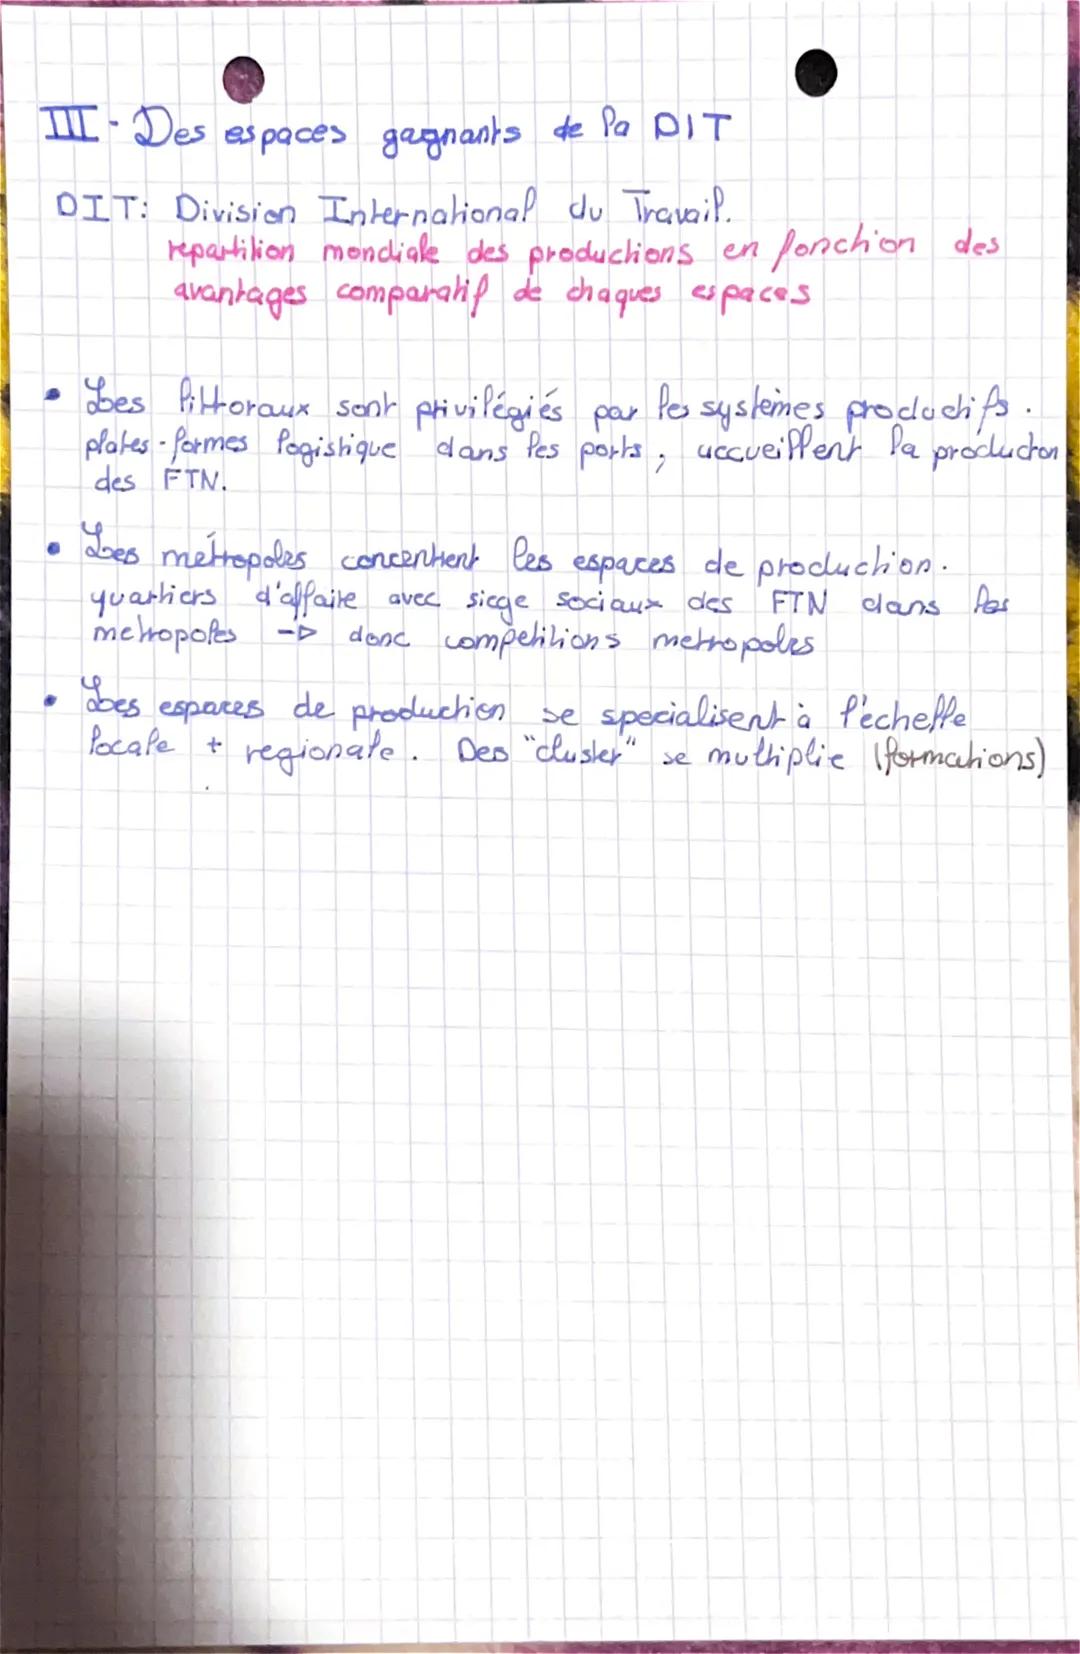 III - Des espaces gagnants de la DIT
DIT: Division International du Travail.
repartition mondiale des productions en fonction des
avantages comparatif de chaques espaces
• Les littoraux sont privilégiés par les systèmes productifs.
plates-formes logistique dans les ports, accueillent la production
des FTN.
• Les métropoles concentrent les espaces de production.
quartiers d'affaire avec siege sociaux des FTN dans les
metropoles -> donc competitions metropoles
• Les espaces de production se specialisent à l'échelle
locale + regionale. Des "cluster" se multiplie (formations)